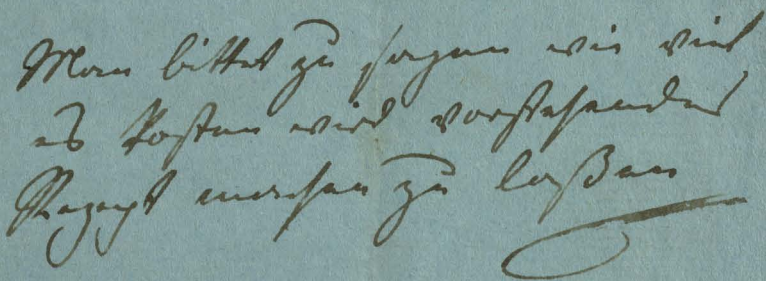 Man bittet zu sagen wie viel
es kosten wird vorstehendes
Rezept machen zu laßen